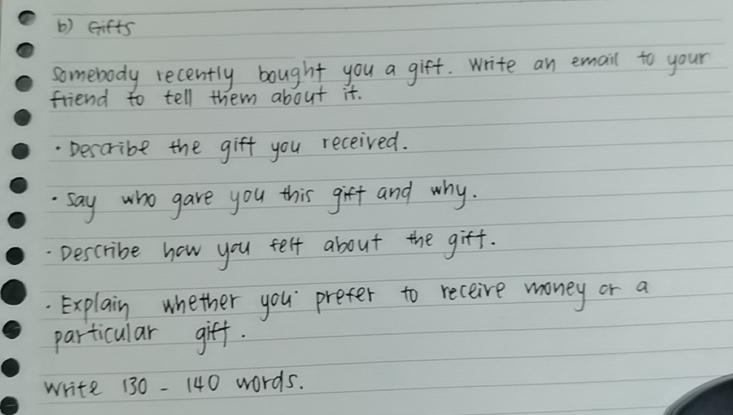 b) Gifts
Somebody recently bought you a gift. Write an email to your
friend to tell them about it.
• Describe the gift you received.
• Say who gave you this gift and why.
• Describe how you felt about the gift.
• Explain whether you prefer to receive money or a
particular gift.
Write 130 - 140 words.